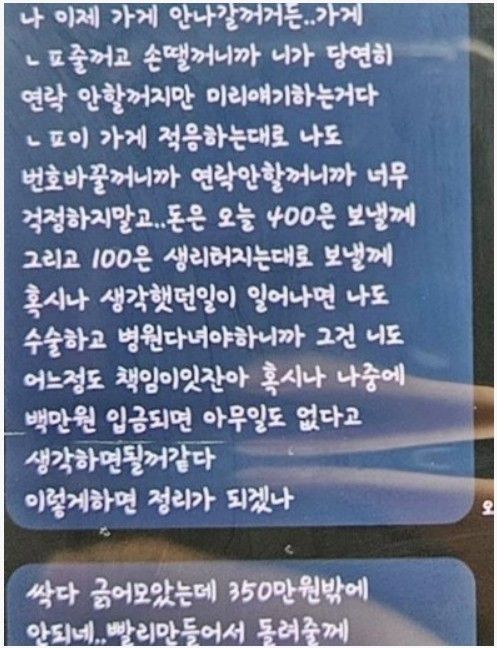 나 이제 가게 안나갈꺼거든..가게
ㄴㅍ줄꺼고 손땔꺼니까 니가 당연히
연락 안할꺼지만 미리얘기하는거다
ㄴㅍ이 가게 적응하는대로 나도
번호바꿀꺼니까 연락안할꺼니까 너무
걱정하지말고..돈은 오늘 400은 보낼께
그리고 100은 생리허지는대로 보낼께
혹시나 생각했던일이 일어나면 나도
수술하고 병원다녀야하니까 그건 니도
어느정도 책임이잇잔아 혹시나 나중에
백만원 입금되면 아무일도 없다고
생각하면될꺼같다
이렇게하면 정리가 되겠나
오
싹다 긁어모았는데 350만원밖에
안되네..빨리만들어서 돌려줄께